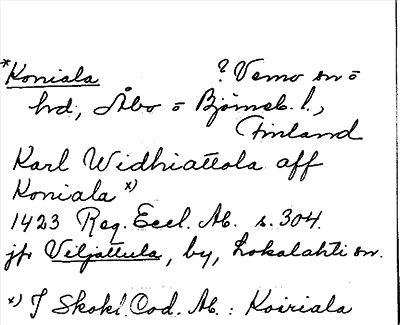 *Koniala ? Vemo sn o
hd, Åbo o Björneb. l.,
Finland
Karl Widhiattola aff
Koniala x)
1423 Reg. Eccl. Ab. s. 304.
jfr Viljattula, by, Lokalahti sn.
x) I Skokl. Cod. Ab.: Koiriala